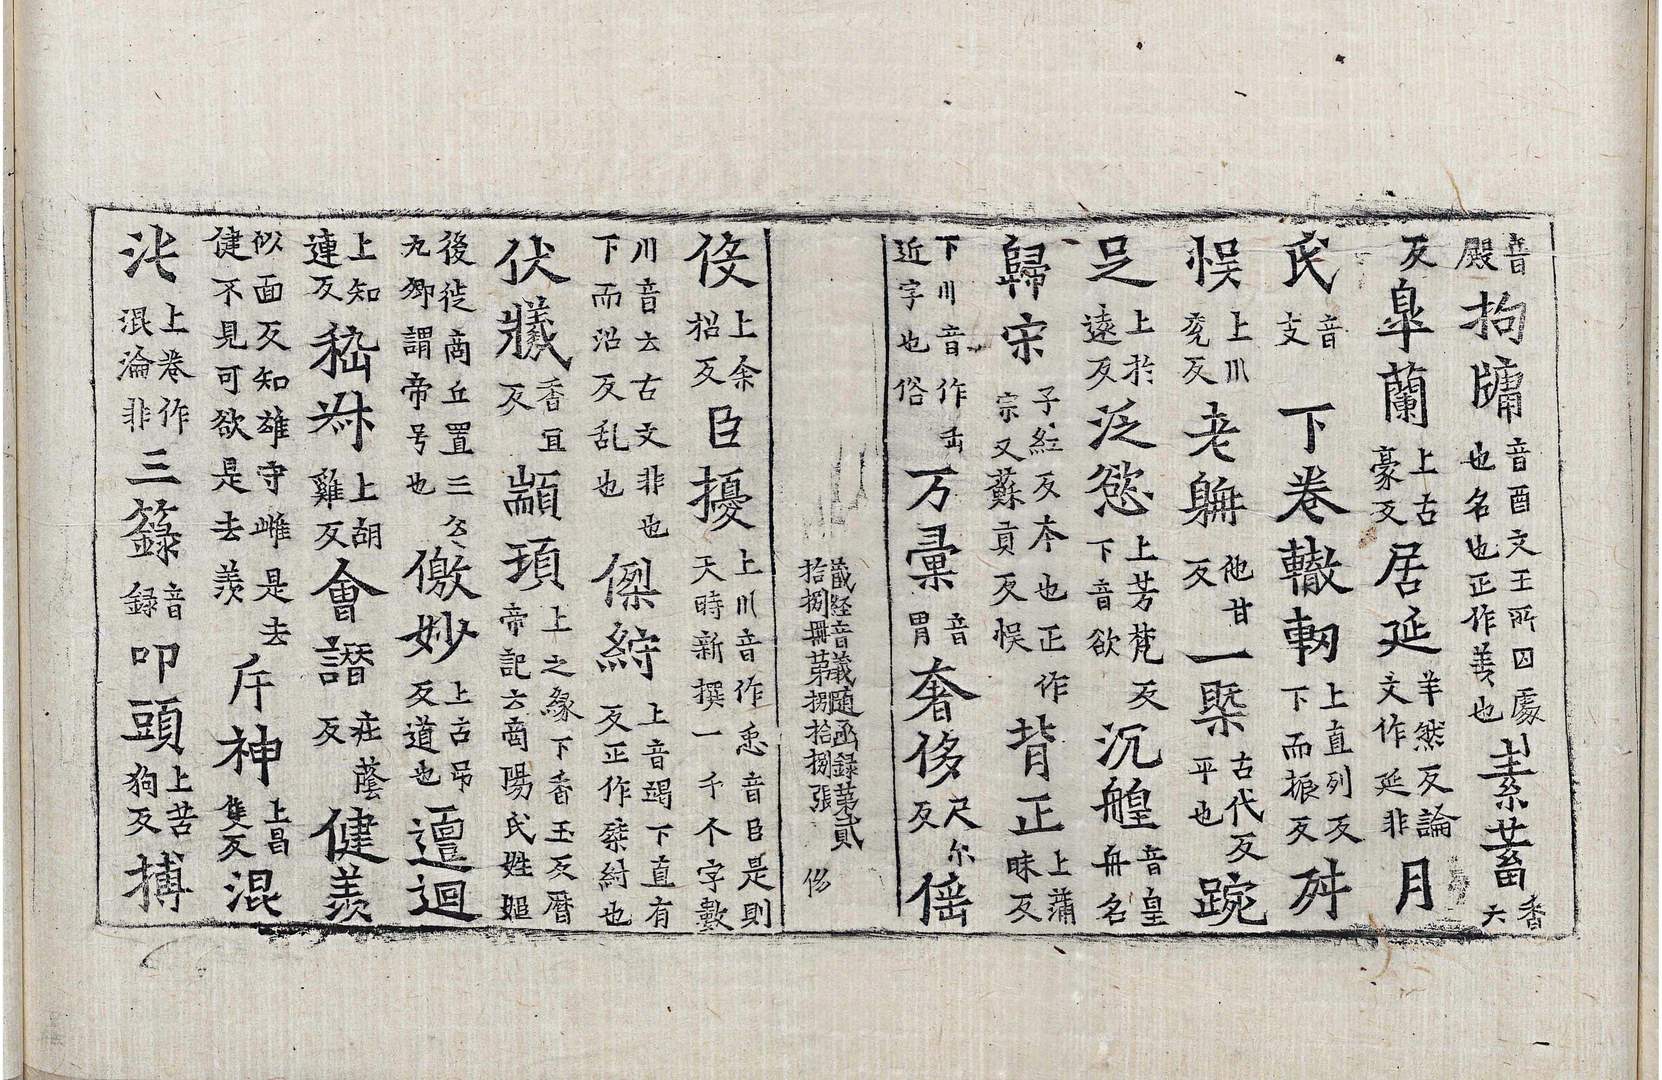 音殿拘牗音酉文王所囚處也名也正作羑也素蓄香六
反皐蘭上古豪反居延羊然反論文作延非月
氏音支下卷轍軔上直列反下而振反舛
悮上川兖反老聃他甘反一槩古代反平也踠
足上於遠反泛慾上芳梵反下音欲沉艎音皇舟名
歸宗子紅反夲也正作宗又蘇貢反悮背正上蒲昧反
下川音作缶近字也俗万彙音胃奢侈尺尔反傜
藏経音義随函録第貳拾捌冊苐捌拾捌張 侈
伇上余招反臣擾上川音作恵音臣是則天時新撰一千个字數
川音云古文非也下而沼反乱也傑紂上音竭下直有反正作桀紂也
伏犧香宜反顓頊上之緣下香玉反曆帝記云高陽氏姓姬
後徙商丘置三公九卿謂帝号也儌妙上古吊反道也邅迴
上知連反嵇叔上胡雞反會譖庄蔭反健羨
似面反知雄守雌是去健不見可欲是去羨斥神上昌隻反混
沌上卷作混淪非三籙音録叩頭上苦狗反搏